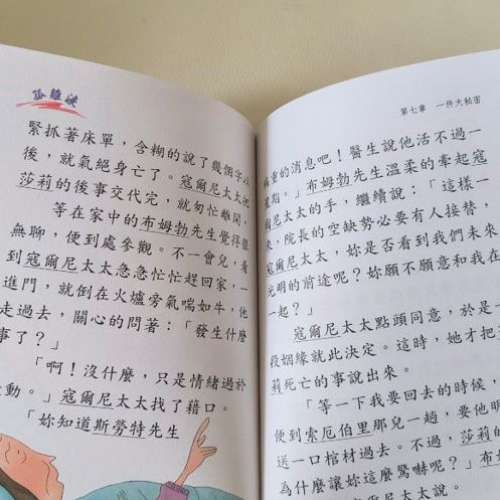 孤雛淚
緊抓著床單，含糊的說了幾個字
後，就氣絕身亡了。寇爾尼太太把
莎莉的後事交代完，就匆忙離開。
等在家中的布姆勃先生覺得
無聊，便到處參觀。不一會兒，看
到寇爾尼太太急急忙忙趕回家，一
進門，就倒在火爐旁氣喘如牛，他
走過去，關心的問著：「發生什麼
事了？」
「啊！沒什麼，只是情緒過於
動。」寇爾尼太太找了藉口。
「妳知道斯勞特先生
第七章 一件大秘密
重的消息吧！醫生說他活不過一
」布姆勃先生溫柔的牽起寇
尼太太的手，繼續說：「這樣一
來，院長的空缺勢必要有人接替，
寇爾尼太太，妳是否看到我們未來
光明的前途呢？妳願不願意和我在
一起？」
寇爾尼太太點頭同意，於是
段姻緣就此決定。這時，她才把
莉死亡的事說出來。
「等一下我要回去的時候，
便到索厄伯里那兒一趟，要他明
送一口棺材過來。不過，莎莉的
為什麼讓妳這麼驚嚇呢？」布
太太說。